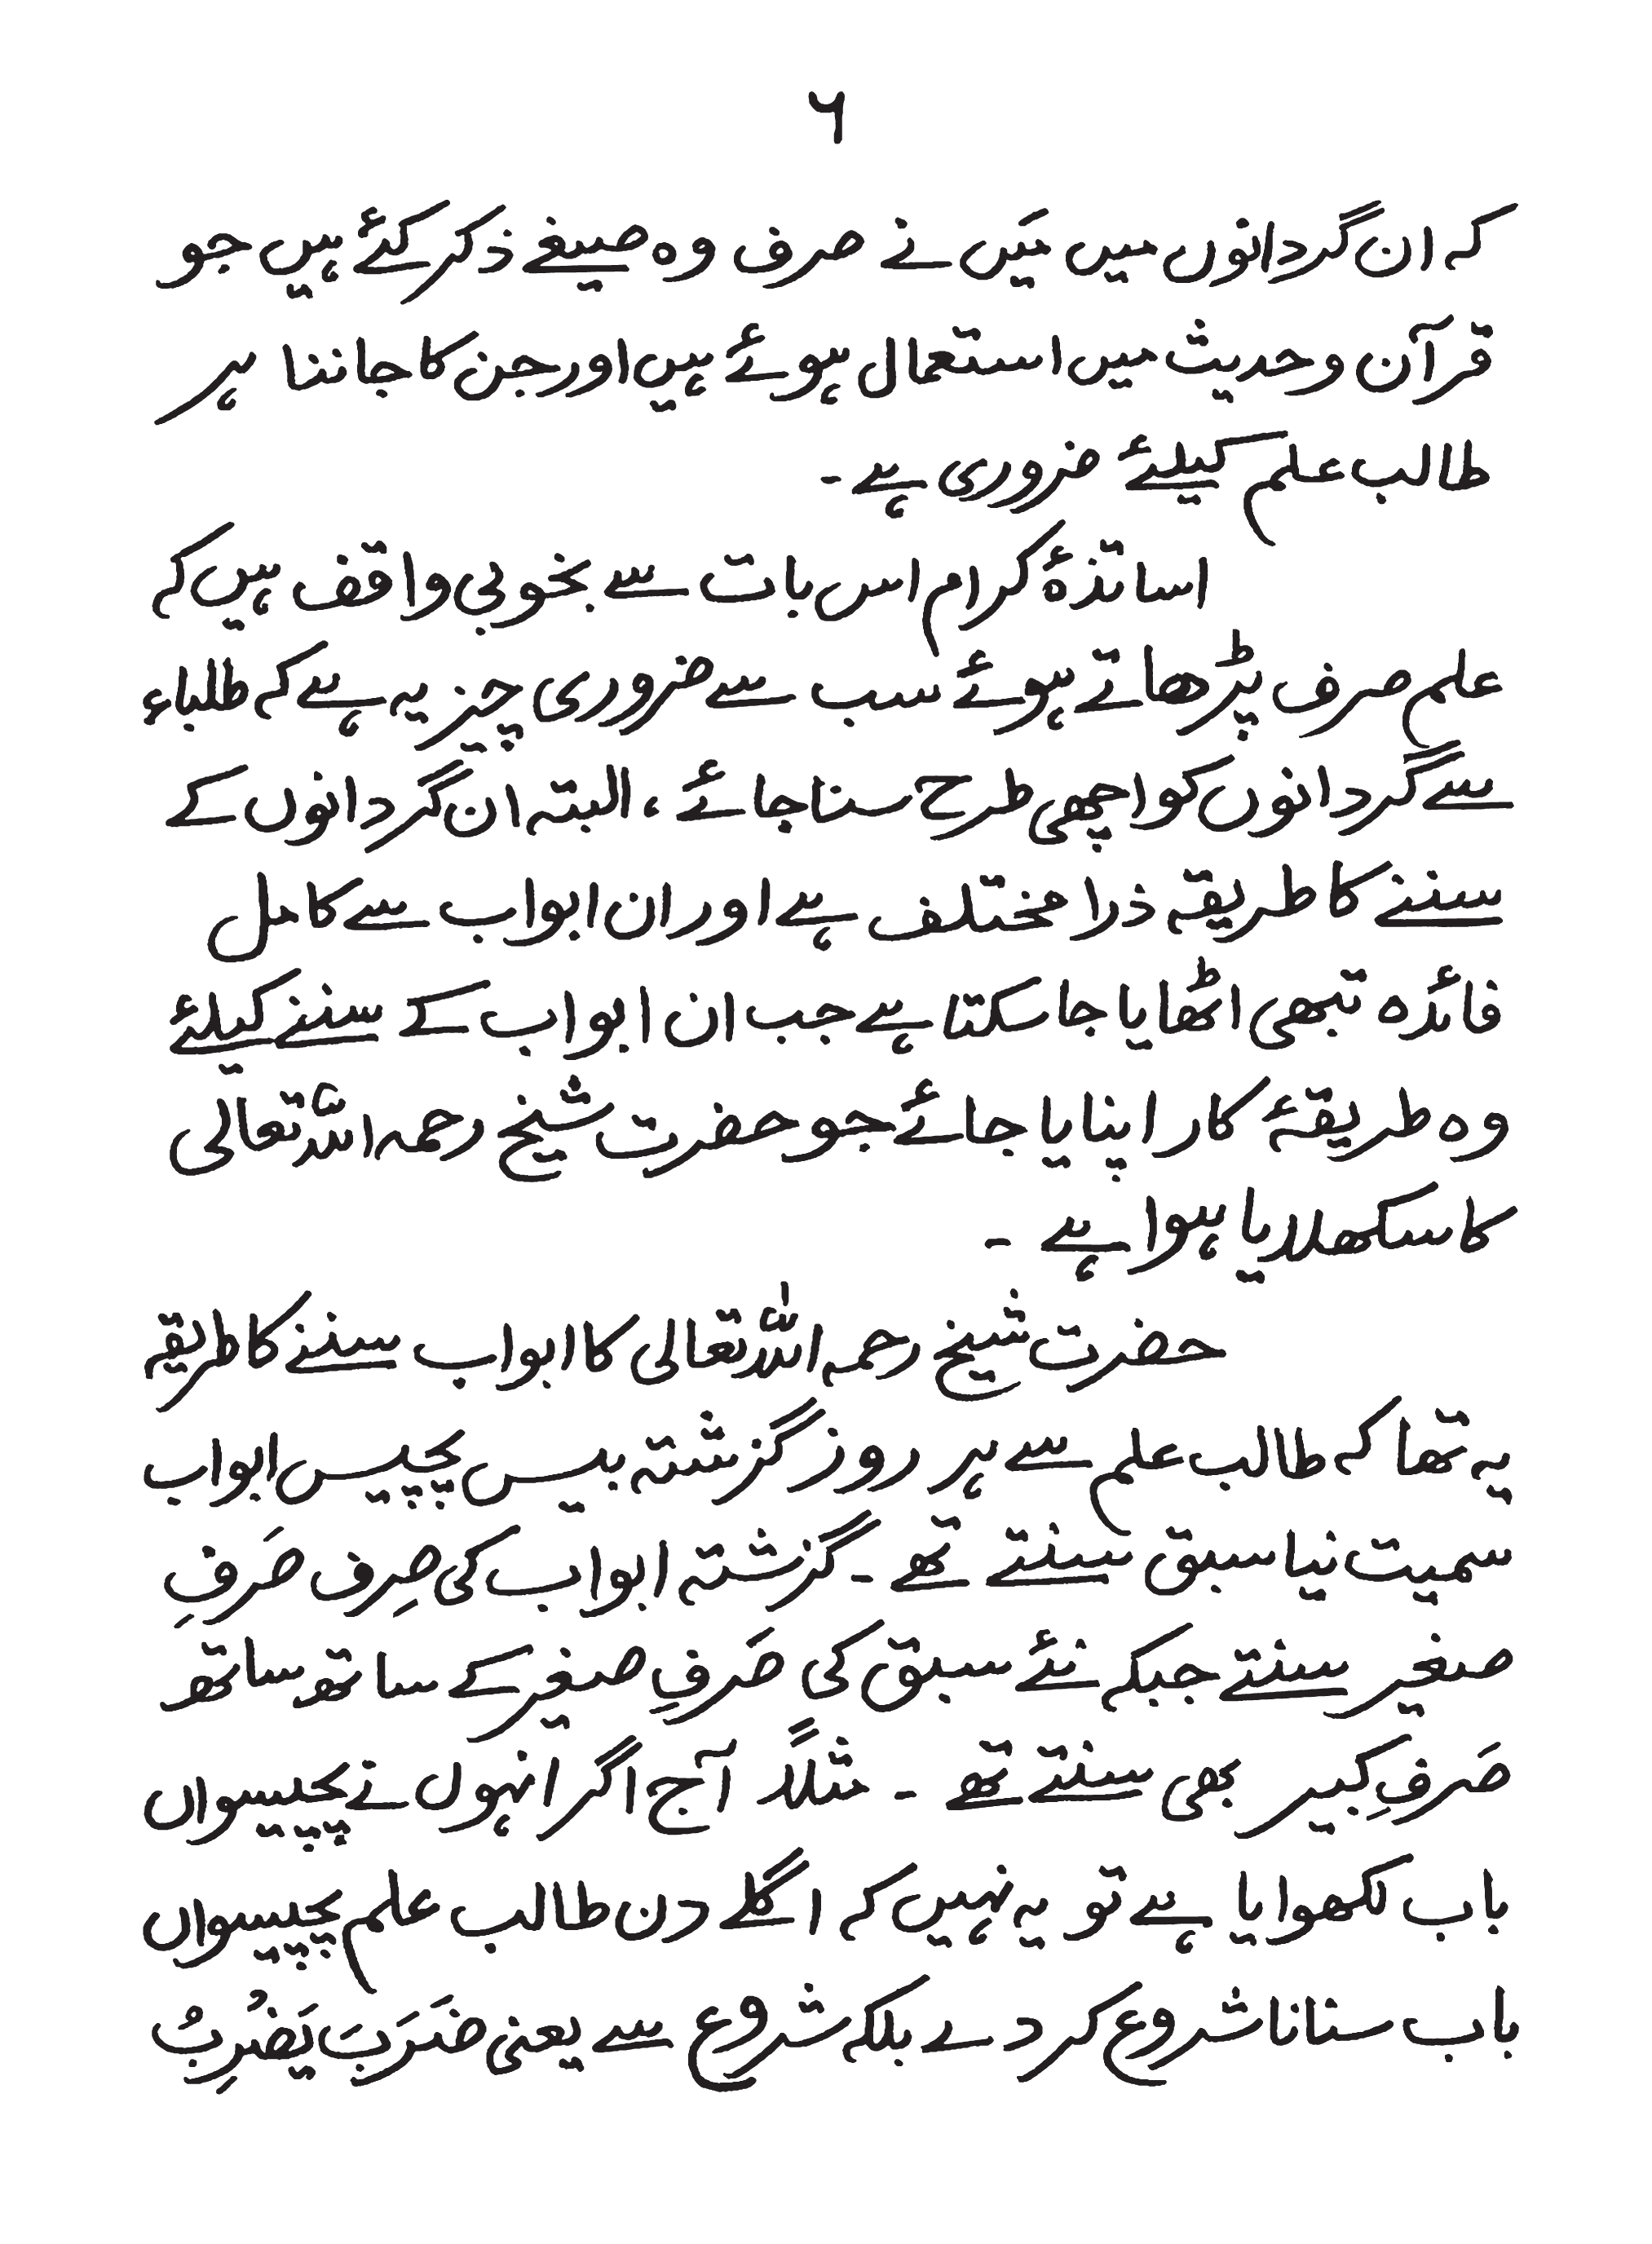 ۶
کہ ان گردانوں میں مَیں نے صرف وہ صیغے ذکر کئے ہیں جو
قرآن و حدیث میں استعمال ہوئے ہیں اور جن کا جاننا ہر
طالب علم کیلئے ضروری ہے ۔
اساتذۂ کرام اس بات سے بخوبی واقف ہیں کہ
علم صرف پڑھاتے ہوئے سب سے ضروری چیز یہ ہے کہ طلباء
سے گردانوں کو اچھی طرح سنا جائے ، البتہ ان گردانوں کے
سننے کا طریقہ ذرا مختلف ہے اور ان ابواب سے کامل
فائدہ تبھی اٹھایا جا سکتا ہے جب ان ابواب کے سننے کیلئے
وہ طریقۂ کار اپنایا جائے جو حضرت شیخ رحمہ اللہ تعالی
کا سکھلایا ہوا ہے ۔
حضرت شیخ رحمہ اللہ تعالی کا ابواب سننے کا طریقہ
یہ تھا کہ طالب علم سے ہر روز گزشتہ بیس پچیس ابواب
سمیت نیا سبق سنتے تھے ۔ گزشتہ ابواب کی صِرف صَرفِ
صغیر سنتے جبکہ نئے سبق کی صَرفِ صغیر کے ساتھ ساتھ
صَرفِ کبیر بھی سنتے تھے ۔ مثلاً آج اگر انہوں نے پچیسواں
باب لکھوایا ہے تو یہ نہیں کہ اگلے دن طالب علم پچیسواں
باب سنانا شروع کر دے بلکہ شروع سے یعنی ضَرَبَ یَضْرِبُ